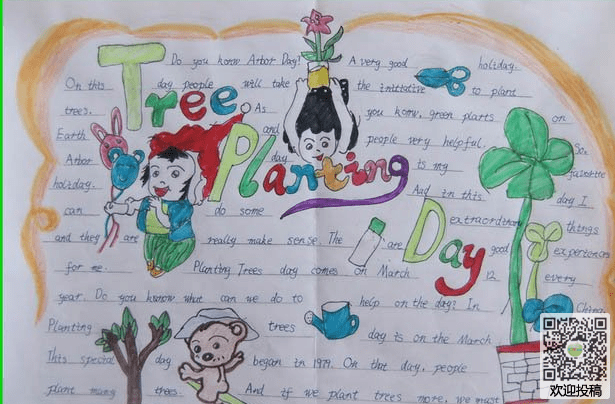 Tree Planting Day
Do you know Arbor Day? A very good holiday.
On this day people will take the initiative to plant
trees. As you know, green plants on
Earth and people very helpful. So
Arbor day is my favorite
holiday. And in this day I
can do some extraordinary things
and they are really make sense. The are good experiences
for me. Planting Trees day comes on March 12 every
year. Do you know what can we do to help on the day? In China
Planting trees day is on the March
This special day began in 1979. On that day, people
plant many trees. And if we plant trees more, we must
欢迎投稿